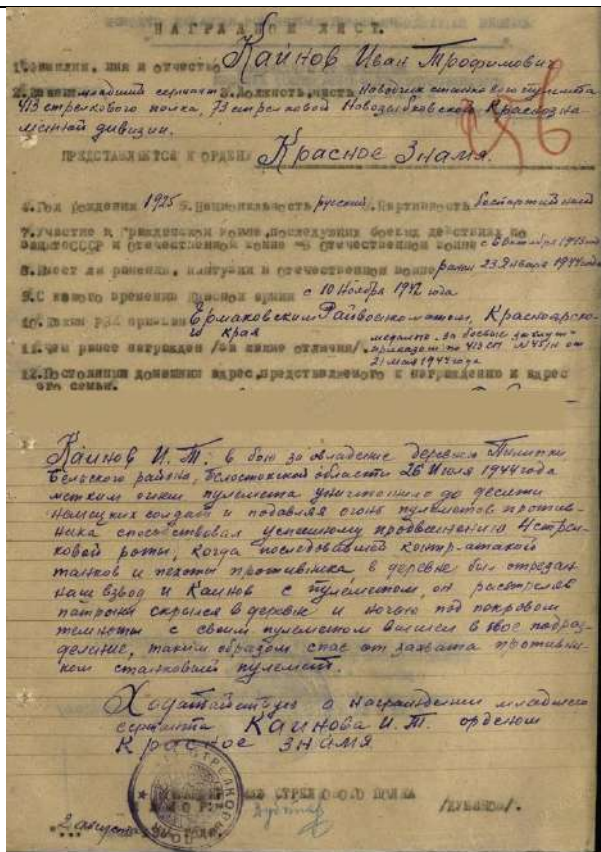 НАГРАДНОЙ ЛИСТ.
1. Фамилия, имя и отчество Каинов Иван Трофимович
2. Звание младший сержант 3. Должность, часть Наводчик станкового пулемета
413 стрелкового полка, 73 стрелковой Новозыбковской Краснозна-
менной дивизии.
ПРЕДСТАВЛЯЕТСЯ К ОРДЕНУ Красное Знамя.
4. Год рождения 1925 5. Национальность русский 6. Партийность беспартийный
7. Участие в Гражданской войне, последующих боевых действиях по
защите СССР и отечественной войне В отечественной войне с 6 октября 1943 года
8. Имеет ли ранения, контузии в отечественной войне ранен 23 Января 1944 года
9. С какого времени в Красной армии с 10 Ноября 1942 года
10. Каким РВК призван Ермаковским Райвоенкоматом, Красноярско-
го края
11. Чем ранее награжден /за какие отличия/. медалью "За боевые заслуги"
приказом по 413 СП № 45/н от
21 мая 1944 года
12. Постоянный домашний адрес представляемого к награждению и адрес
его семьи.
Каинов И. Т. в бою за овладение деревней Пилипки
Бельского района, Белостокской области 26 Июля 1944 года
метким огнем пулемета уничтожило до десяти
немецких солдат и подавляя огонь пулеметов против-
ника способствовал успешному продвижению 4 стрел-
ковой роты, когда последовавшей контр-атакой
танков и пехоты противника в деревне был отрезан
наш взвод и Каинов с пулеметом, он расстреляв
патроны скрылся в деревне и ночью под покровом
темноты с своим пулеметом вышел в свое подраз-
деление, таким образом спас от захвата противни-
ком станковый пулемет.
Ходатайствую о награждении младшего
сержанта Каинова И. Т. орденом
Красное Знамя
СТРЕЛКОВОГО ПОЛКА
МАЙОР /ДУБЯКОВ/.
2 августа